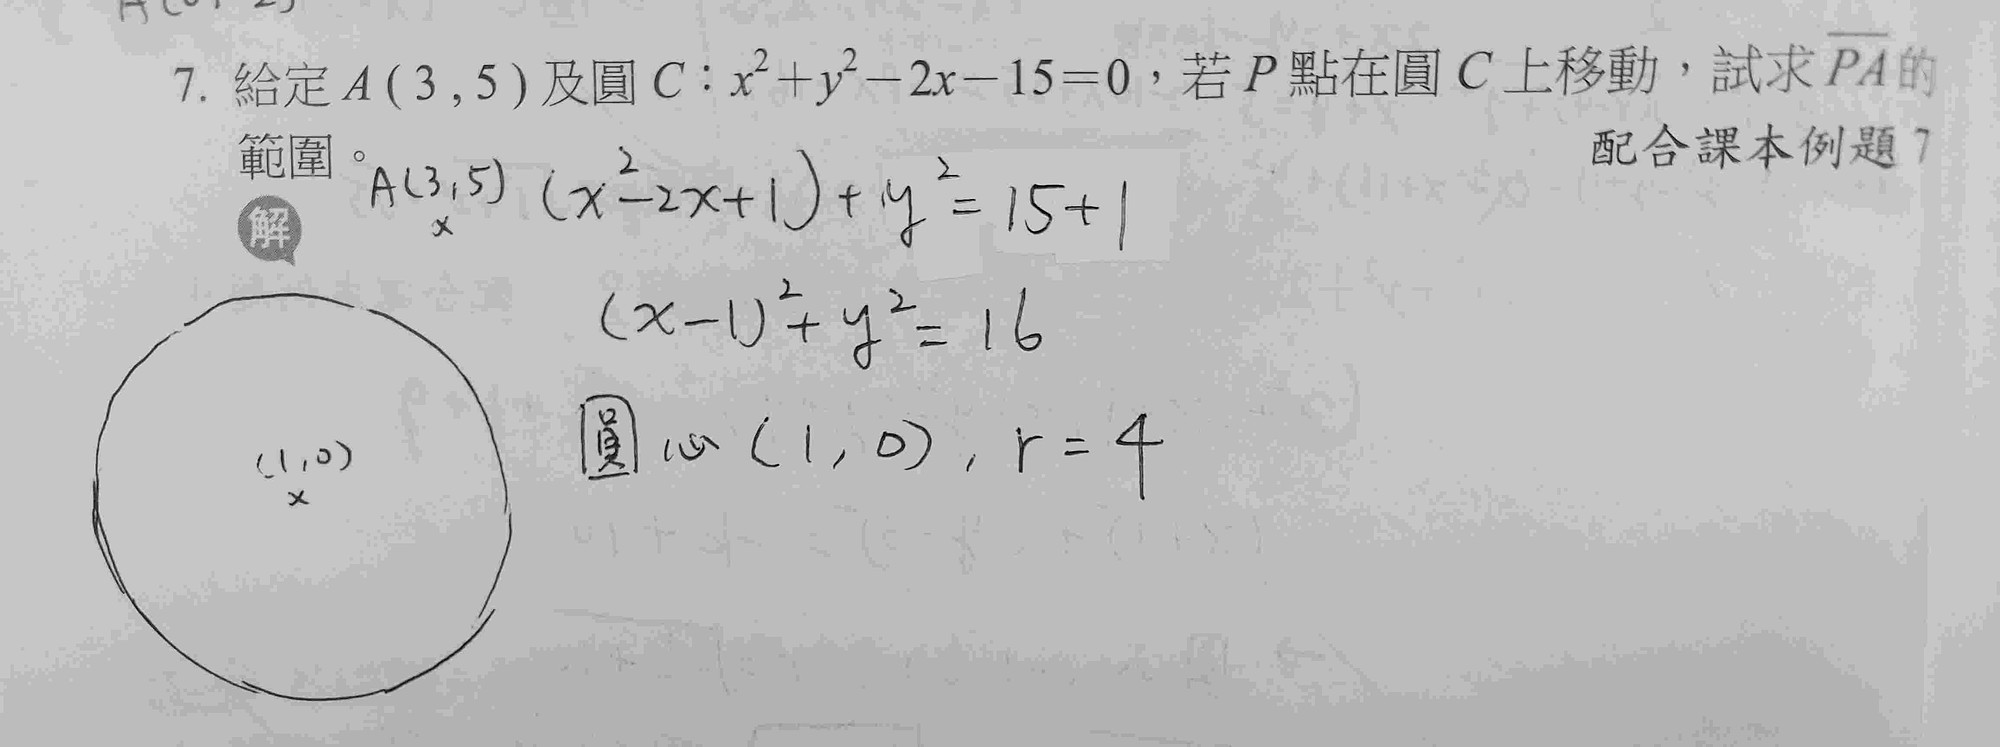 7. 給定 A ( 3 , 5 ) 及圓 C：x²+y²−2x−15=0，若 P 點在圓 C 上移動，試求 PA 的
範圍。
配合課本例題 7
解
A(3,5) (x²-2x+1)+y²=15+1
x
(x-1)²+y²=16
圓心(1,0), r=4
(1,0)
x